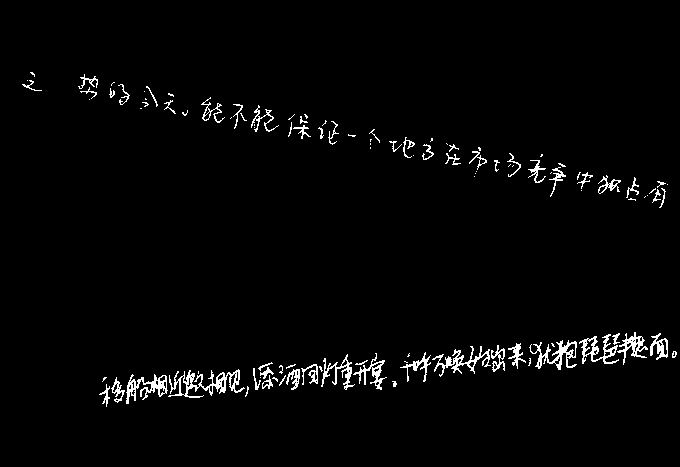 之势的今天。能不能保证一个地方在市场竞争中独占有
移船相近邀相见,添酒回灯重开宴。千呼万唤始出来,犹抱琵琶半遮面。